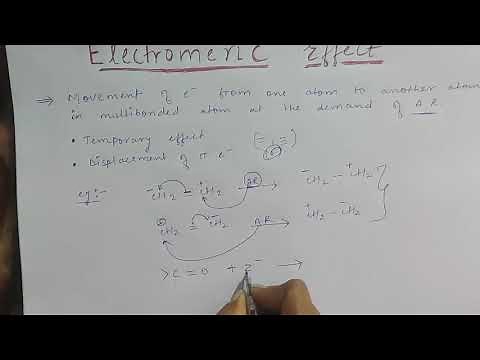 Electromeric Effect
⇒ Movement of e⁻ from one atom to another atom
in multibonded atom at the demand of A.R.
• Temporary effect (=, ≡)
• Displacement of π e⁻
eg:- ⁻CH₂ = ⁺CH₂ AR → ⁻CH₂ – ⁺CH₂
⊕CH₂ = ⁻CH₂ A.R → ⁺CH₂ – ⁻CH₂
>C=O + Z⁻ →